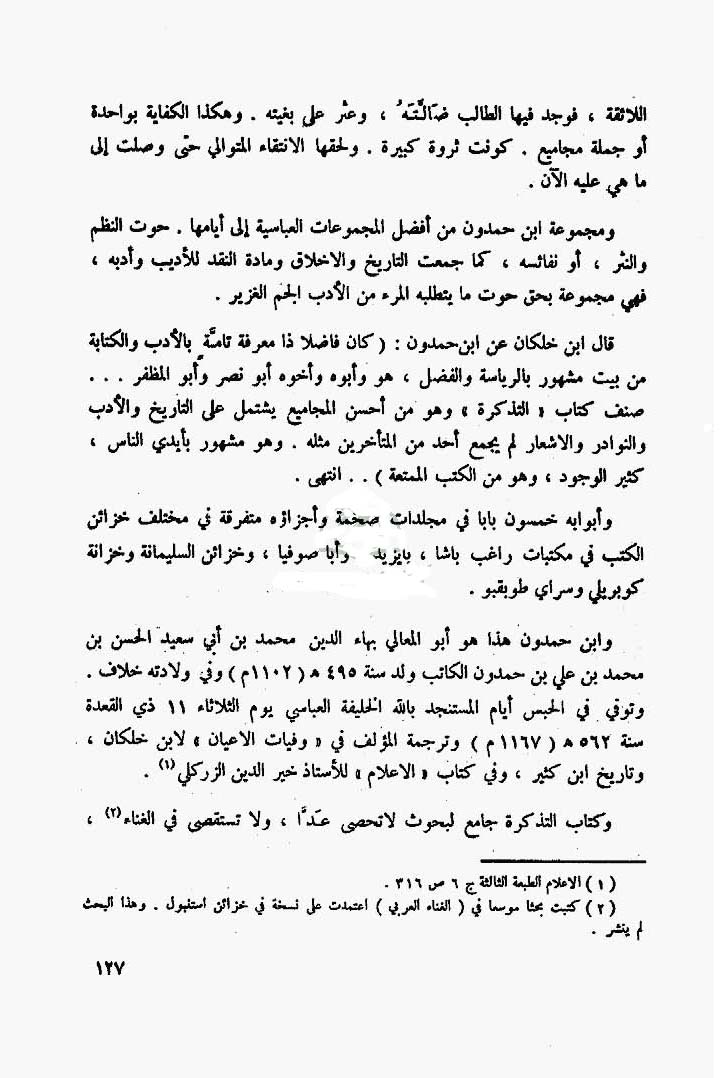 اللائقة ، فوجد فيها الطالب ضَالَّتَهُ ، وعثر على بغيته . وهكذا الكفاية بواحدة
أو جملة مجاميع . كونت ثروة كبيرة . ولحقها الانتقاء المتوالي حتى وصلت إلى
ما هي عليه الآن .
ومجموعة ابن حمدون من أفضل المجموعات العباسية إلى أيامها . حوت النظم
والنثر ، أو نفائسه ، كما جمعت التاريخ والاخلاق ومادة النقد للأديب وأدبه ،
فهي مجموعة بحق حوت ما يتطلبه المرء من الأدب الجم الغزير .
قال ابن خلكان عن ابن حمدون : ( كان فاضلا ذا معرفة تامَّةٍ بالأدب والكتابة
من بيت مشهور بالرياسة والفضل ، هو وأبوه وأخوه أبو نصر وأبو المظفر . . .
صنف كتاب « التذكرة » وهو من أحسن المجاميع يشتمل على التاريخ والأدب
والنوادر والاشعار لم يجمع أحد من المتأخرين مثله . وهو مشهور بأيدي الناس ،
كثير الوجود ، وهو من الكتب الممتعة ) . . انتهى .
وأبوابه خمسون بابا في مجلدات ضخمة وأجزاؤه متفرقة في مختلف خزائن
الكتب في مكتبات راغب باشا ، بايزيد وأبا صوفيا ، وخزائن السليمانة وخزانة
كوبريلي وسراي طوبقبو .
وابن حمدون هذا هو أبو المعالي بهاء الدين محمد بن أبي سعيد الحسن بن
محمد بن علي بن حمدون الكاتب ولد سنة ٤٩٥ ه ( ١١٠٢م ) وفي ولادته خلاف .
وتوفي في الحبس أيام المستنجد بالله الخليفة العباسي يوم الثلاثاء ١١ ذي القعدة
سنة ٥٦٢ ه ( ١١٦٧ م ) وترجمة المؤلف في « وفيات الاعيان » لابن خلكان ،
وتاريخ ابن كثير ، وفي كتاب « الاعلام » للأستاذ خير الدين الزركلي (١) .
وكتاب التذكرة جامع لبحوث لاتحصى عَدًّا ، ولا تستقصى في الغناء (٢) ،
( ١ ) الاعلام الطبعة الثالثة ج ٦ ص ٣١٦ .
( ٢ ) كتبت بحثا موسعا في ( الغناء العربي ) اعتمدت على نسخة في خزائن استنبول . وهذا البحث
لم ينشر .
١٢٧